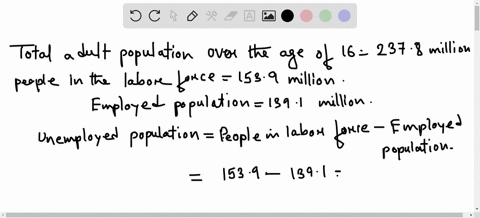 Total adult population over the age of 16 = 237.8 million
people in the labor force = 153.9 million.
Employed population = 139.1 million.
Unemployed population = People in labor force - Employed
population.
= 153.9 - 139.1 =